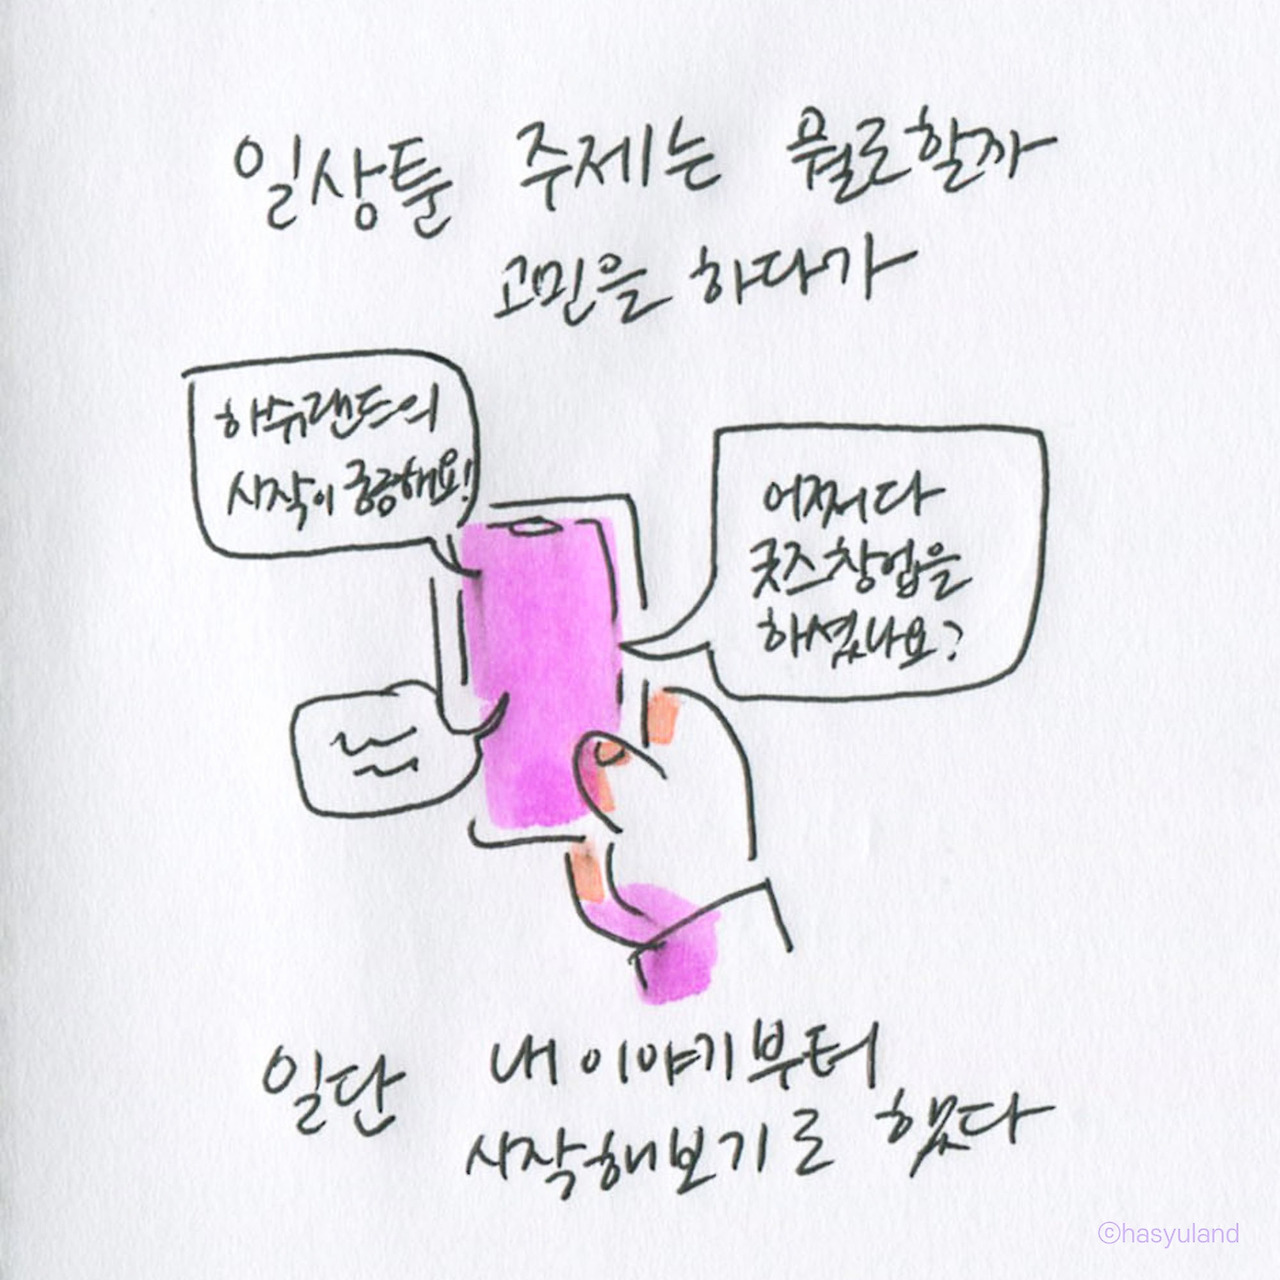 일상툰 주제는 뭘로할까
고민을 하다가
하슈랜드의
시작이 궁금해요!
어쩌다
굿즈창업을
하셨나요?
일단 내 이야기부터
시작해보기로 했다
©hasyuland